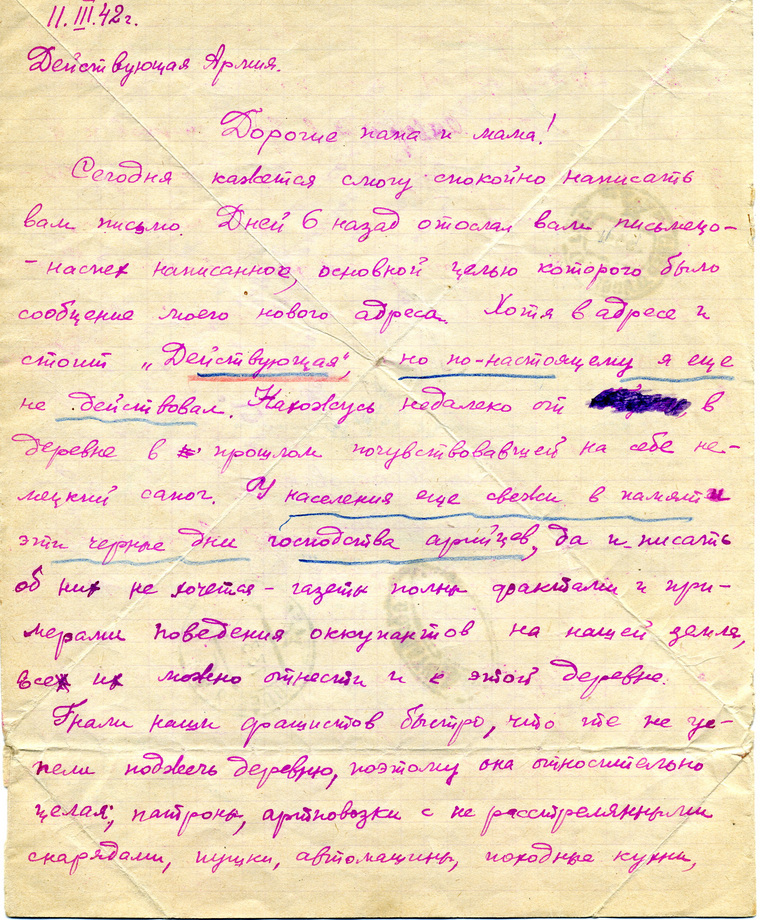 11.III.42г.
Действующая Армия.
Дорогие папа и мама!
Сегодня кажется смогу спокойно написать
вам письмо. Дней 6 назад отослал вам письмецо-
-наспех написанное, основной целью которого было
сообщение моего нового адреса. Хотя в адресе и
стоит „Действующая“, но по-настоящему я еще
не действовал. Нахожусь недалеко от в
деревне в прошлом почувствовавшей на себе не-
мецкий сапог. У населения еще свежи в памяти
эти черные дни господства арийцев, да и писать
об них не хочется - газеты полны фактами и при-
мерами поведения оккупантов на нашей земле,
все их можно отнести и к этой деревне.
Гнали наши фашистов быстро, что те не ус-
пели поджечь деревню, поэтому она относительно
целая; патроны, артповозки с не расстрелянными
снарядами, пушки, автомашины, походные кухни,